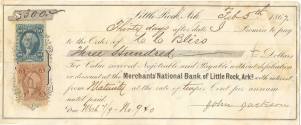 $300.
Little Rock, Ark. Feb 5th 1867
Thirty days after date I Promise to pay
to the Order of C. C. Bliss
Three Hundred Dollars
For Value received Negotiable and Payable without defalcation
or discount at the Merchants National Bank of Little Rock, Ark. with interest
from Maturity at the rate of per Cent per annum
until paid.
Due No. 940 John Jackson